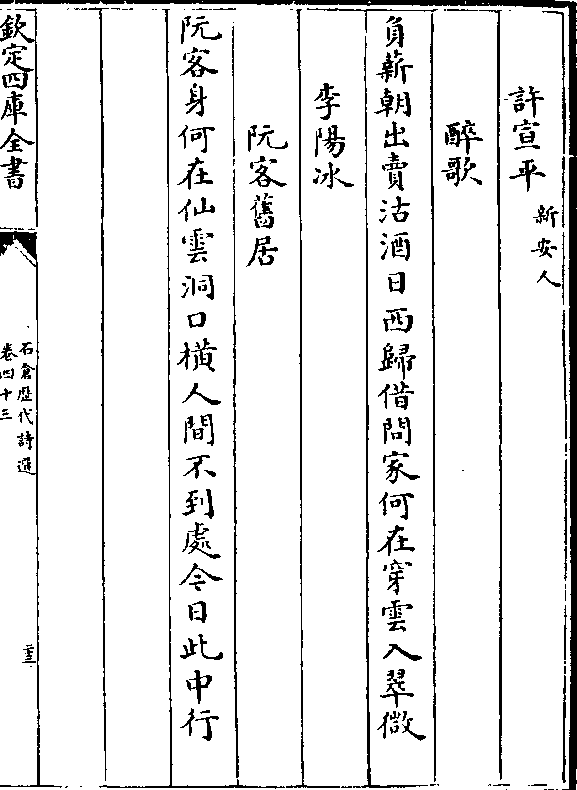 許宣平新安人
醉歌
負薪朝出賣沽酒日西歸借問家何在穿雲入翠微
李陽冰
阮客舊居
阮客身何在仙雲洞口橫人間不到處今日此中行
欽定四庫全書
石倉歷代詩選
卷四十三